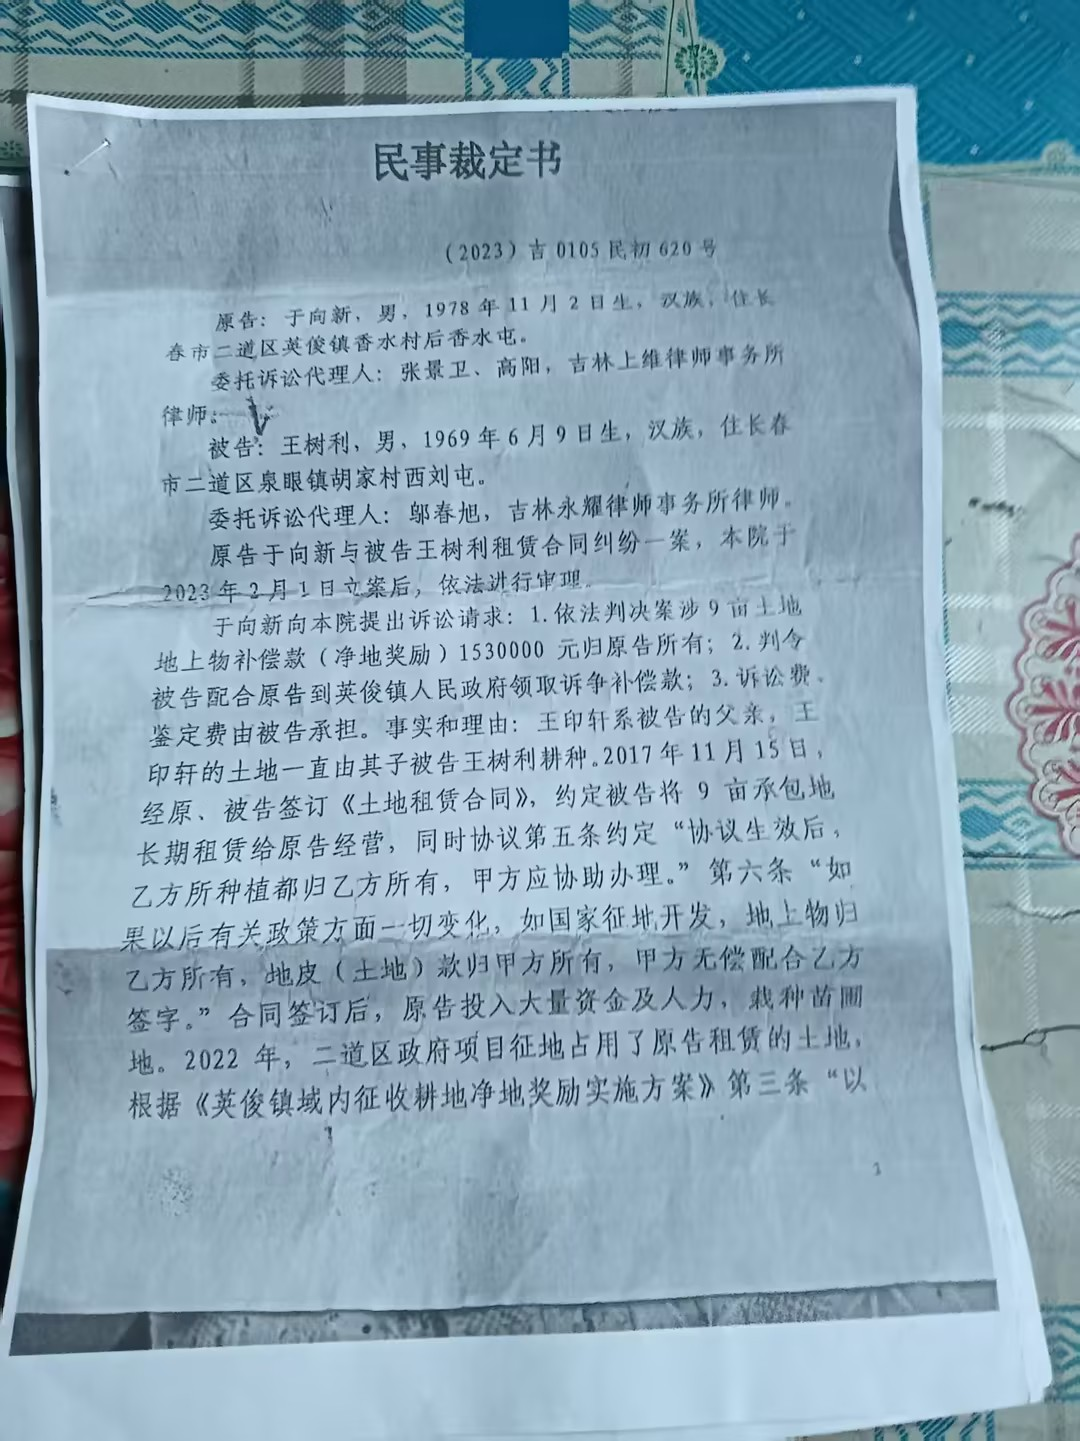 民事裁定书
（2023）吉 0105 民初 620 号
原告：于向新，男，1978 年 11 月 2 日生，汉族，住长
春市二道区英俊镇香水村后香水屯。
委托诉讼代理人：张景卫、高阳，吉林上维律师事务所
律师。
被告：王树利，男，1969 年 6 月 9 日生，汉族，住长春
市二道区泉眼镇胡家村西刘屯。
委托诉讼代理人：邬春旭，吉林永耀律师事务所律师。
原告于向新与被告王树利租赁合同纠纷一案，本院于
2023 年 2 月 1 日立案后，依法进行审理。
于向新向本院提出诉讼请求：1.依法判决案涉 9 亩土地
地上物补偿款（净地奖励）1530000 元归原告所有；2.判令
被告配合原告到英俊镇人民政府领取诉争补偿款；3.诉讼费、
鉴定费由被告承担。事实和理由：王印轩系被告的父亲，王
印轩的土地一直由其子被告王树利耕种。2017 年 11 月 15 日，
经原、被告签订《土地租赁合同》，约定被告将 9 亩承包地
长期租赁给原告经营，同时协议第五条约定“协议生效后，
乙方所种植都归乙方所有，甲方应协助办理。”第六条“如
果以后有关政策方面一切变化，如国家征地开发，地上物归
乙方所有，地皮（土地）款归甲方所有，甲方无偿配合乙方
签字。”合同签订后，原告投入大量资金及人力，栽种苗圃
地。2022 年，二道区政府项目征地占用了原告租赁的土地，
根据《英俊镇域内征收耕地净地奖励实施方案》第三条“以
1